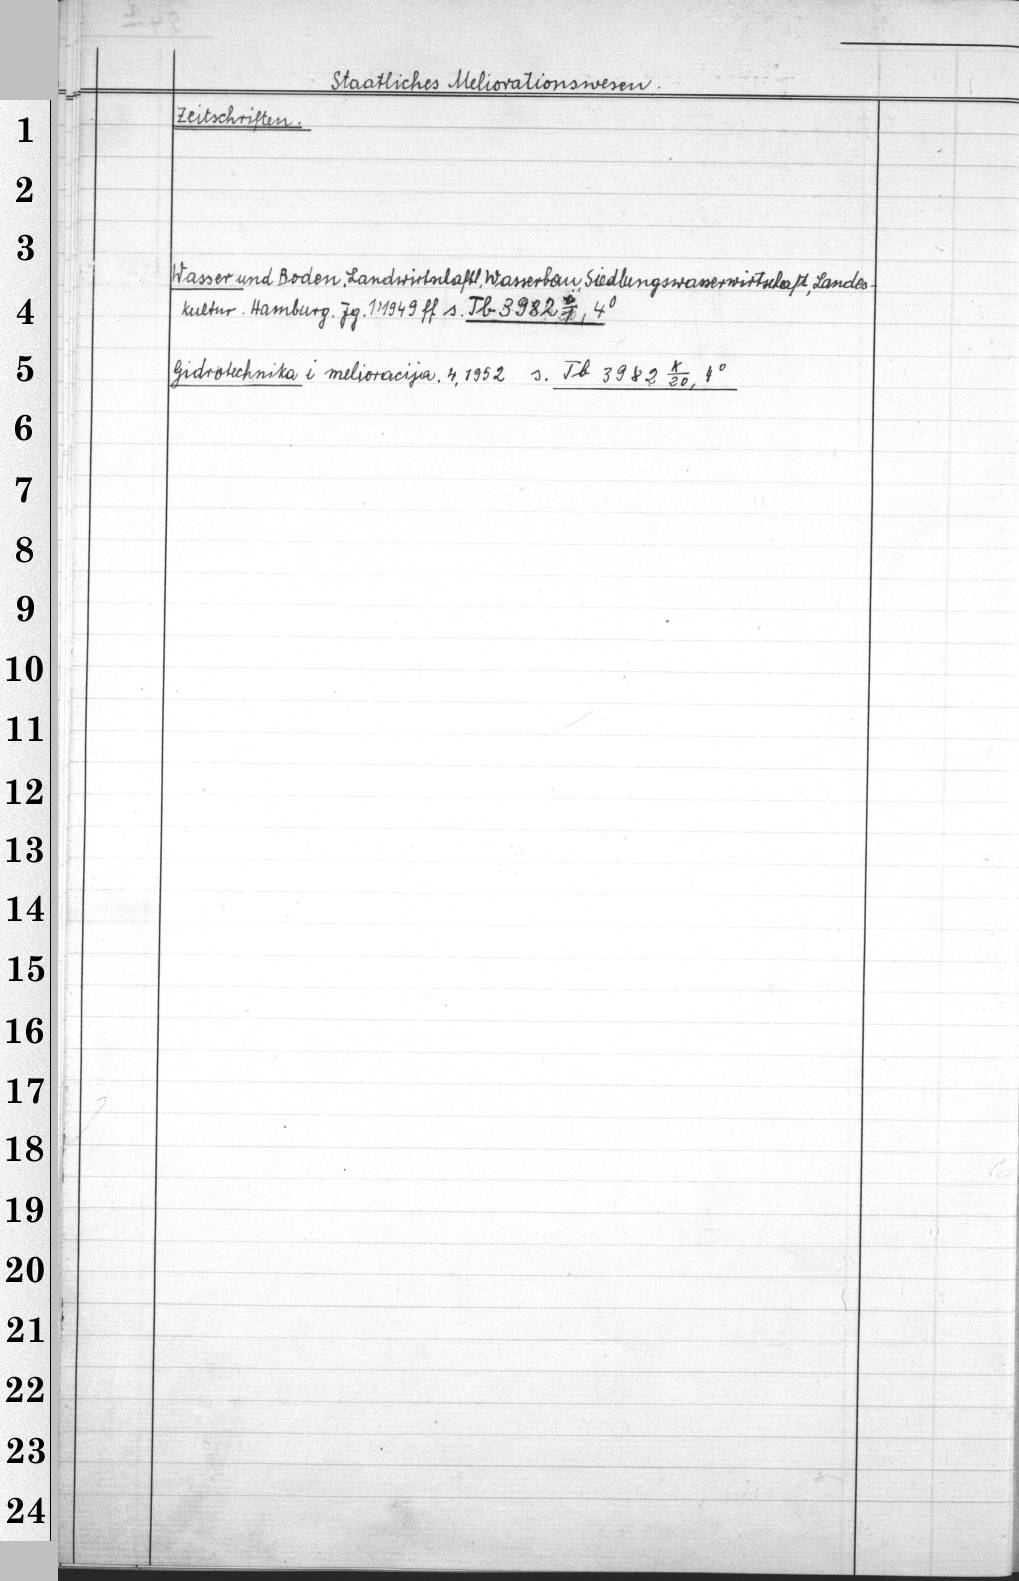 Staatliches Meliorationswesen.
Zeitschriften.
Wasser und Boden, Landwirtschaftl. Wasserbau, Siedlungswasserwirtschaft, Landes-
kultur. Hamburg. Jg. 1, 1949 ff s. Tb 3982 , 4°
Gidrotechnika i melioracija. 4, 1952 s. Tb 3982 K/20, 4°
1
2
3
4
5
6
7
8
9
10
11
12
13
14
15
16
17
18
19
20
21
22
23
24